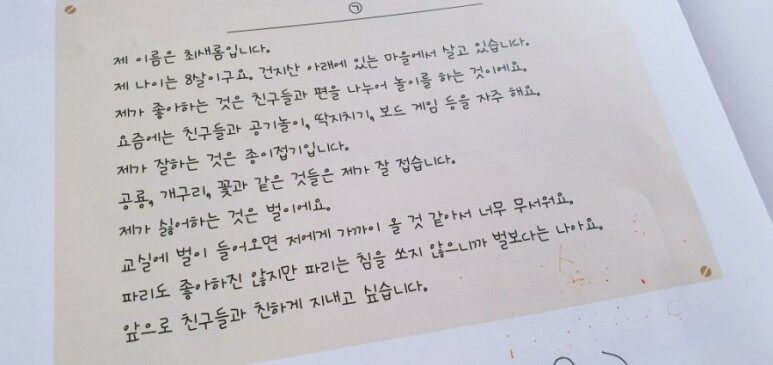 ㉠
제 이름은 최새롬입니다.
제 나이는 8살이구요. 건지산 아래에 있는 마을에서 살고 있습니다.
제가 좋아하는 것은 친구들과 편을 나누어 놀이를 하는 것이에요.
요즘에는 친구들과 공기놀이, 딱지치기, 보드 게임 등을 자주 해요.
제가 잘하는 것은 종이접기입니다.
공룡, 개구리, 꽃과 같은 것들은 제가 잘 접습니다.
제가 싫어하는 것은 벌이에요.
교실에 벌이 들어오면 저에게 가까이 올 것 같아서 너무 무서워요.
파리도 좋아하진 않지만 파리는 침을 쏘지 않으니까 벌보다는 나아요.
앞으로 친구들과 친하게 지내고 싶습니다.